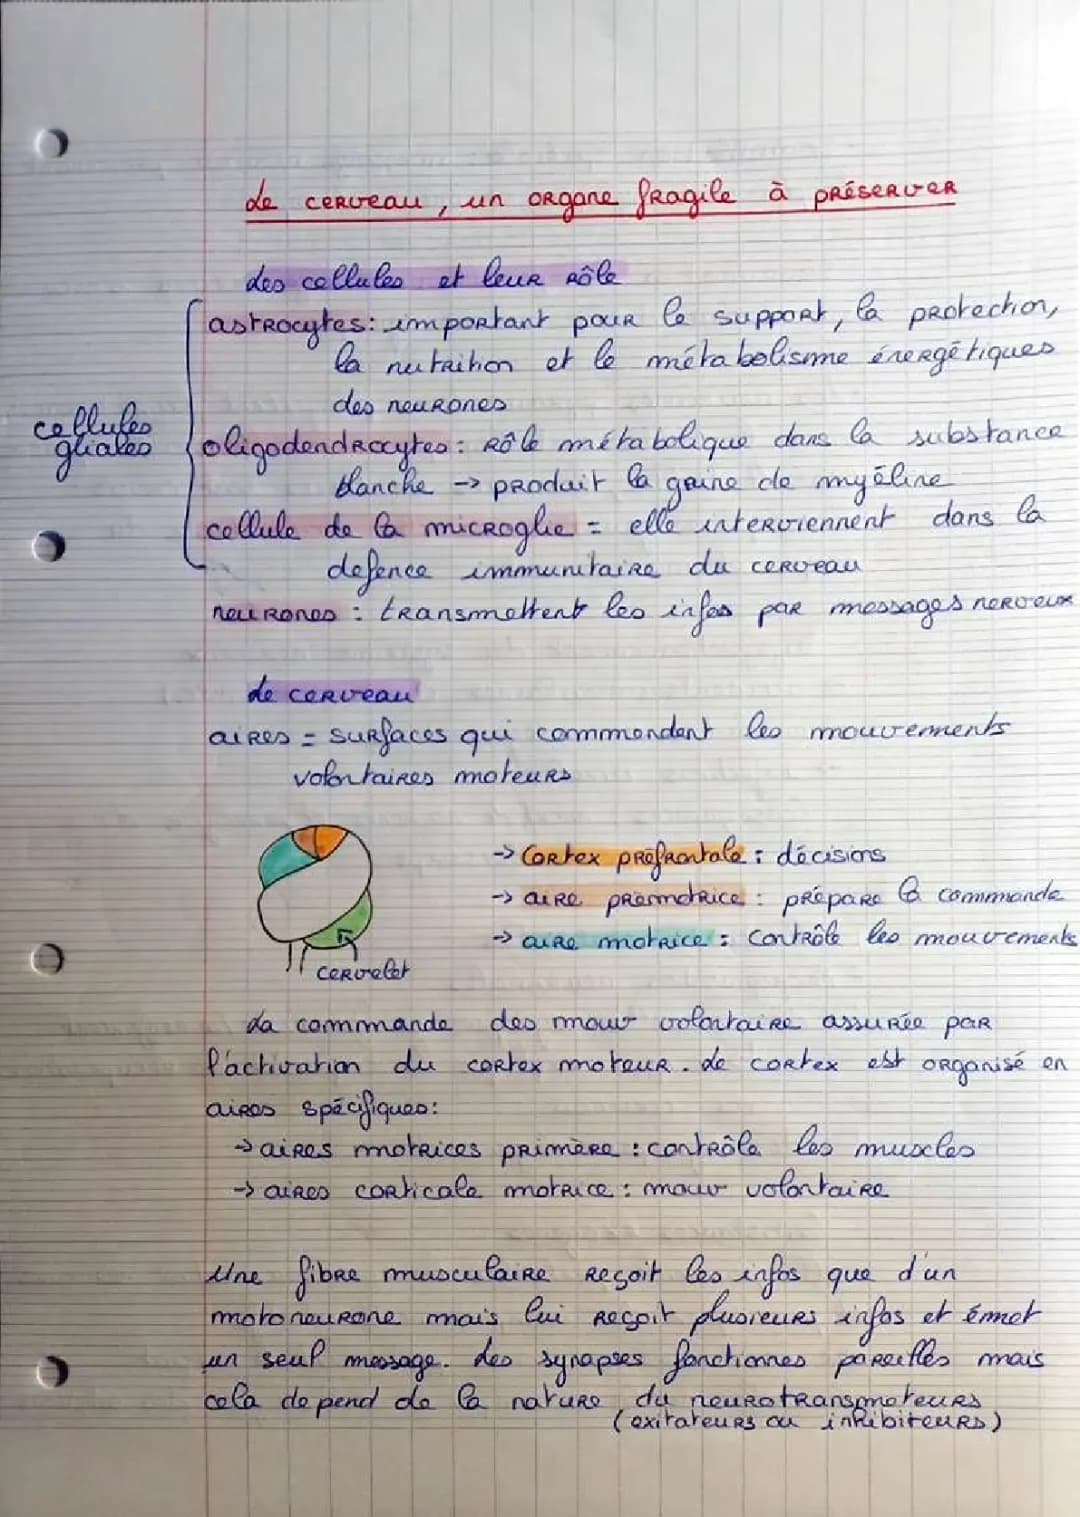 Le cerveau, un organe fragile à préserver
Les cellules et leur rôle
astrocytes: important pour le support, la protection,
la nutrition et le métabolisme énergétiques
des neurones
cellules
gliales
oligodendrocytes: rôle métabolique dans la substance
blanche -> produit la gaine de myéline
cellule de la microglie = elle interviennent dans la
defence immunitaire du cerveau
neurones : transmettent les infos par messages nerveux
Le cerveau
aires = surfaces qui commandent les mouvements
volontaires moteurs
-> Cortex préfrontale : décisions
-> aire prémotrice : prépare la commande
-> aire motrice : contrôle les mouvements
cervelet
La commande des mouv volontaire assurée par
l'activation du cortex moteur. Le cortex est organisé en
aires spécifiques:
-> aires motrices primère : contrôle les muscles
-> aires corticale motrice : mouv volontaire
Une fibre musculaire reçoit les infos que d'un
motoneurone mais lui reçoit plusieurs infos et émet
un seul message. Les synapses fonctionnes pareilles mais
cela depend de la nature du neurotransmeteurs
(exitateurs ou inhibiteurs)